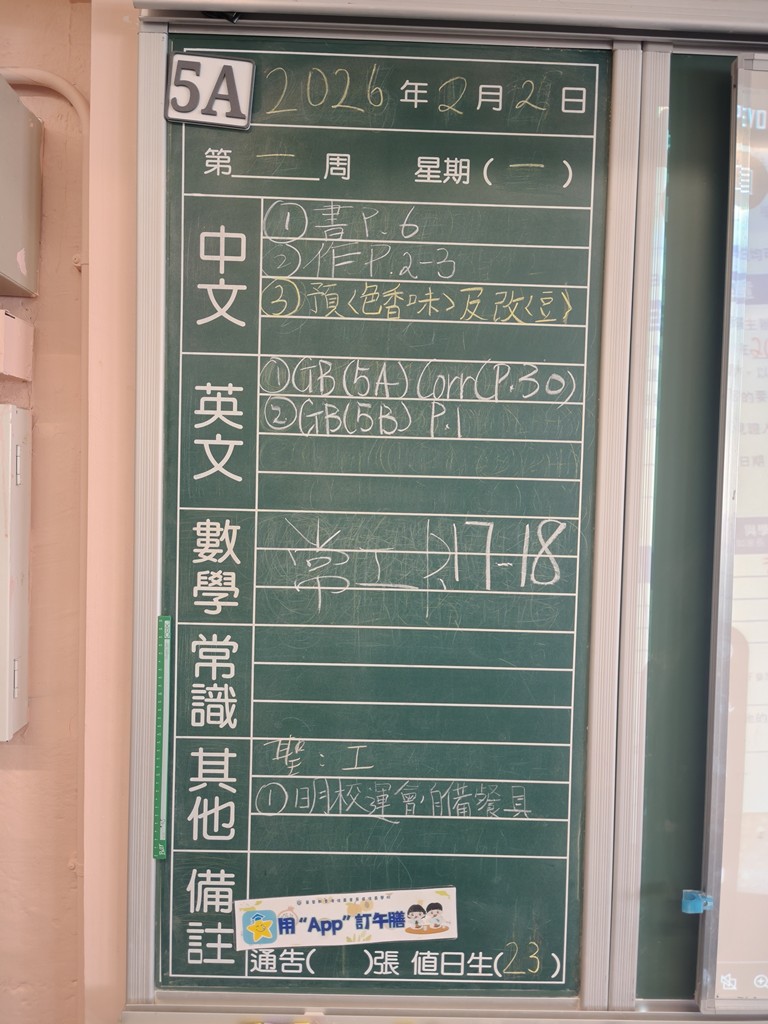 5A 2026年2月2日
第二周 星期(一)
中文
①書P.6
②作P.2-3
③預〈色香味〉及改〈豆〉
英文
①GB(5A) Corr(P.30)
②GB(5B) P.1
數學
常工 P.17-18
常識
其他
聖:工
①明校運會,自備餐具
備註
用“App”訂午膳
通告( )張 值日生(23)